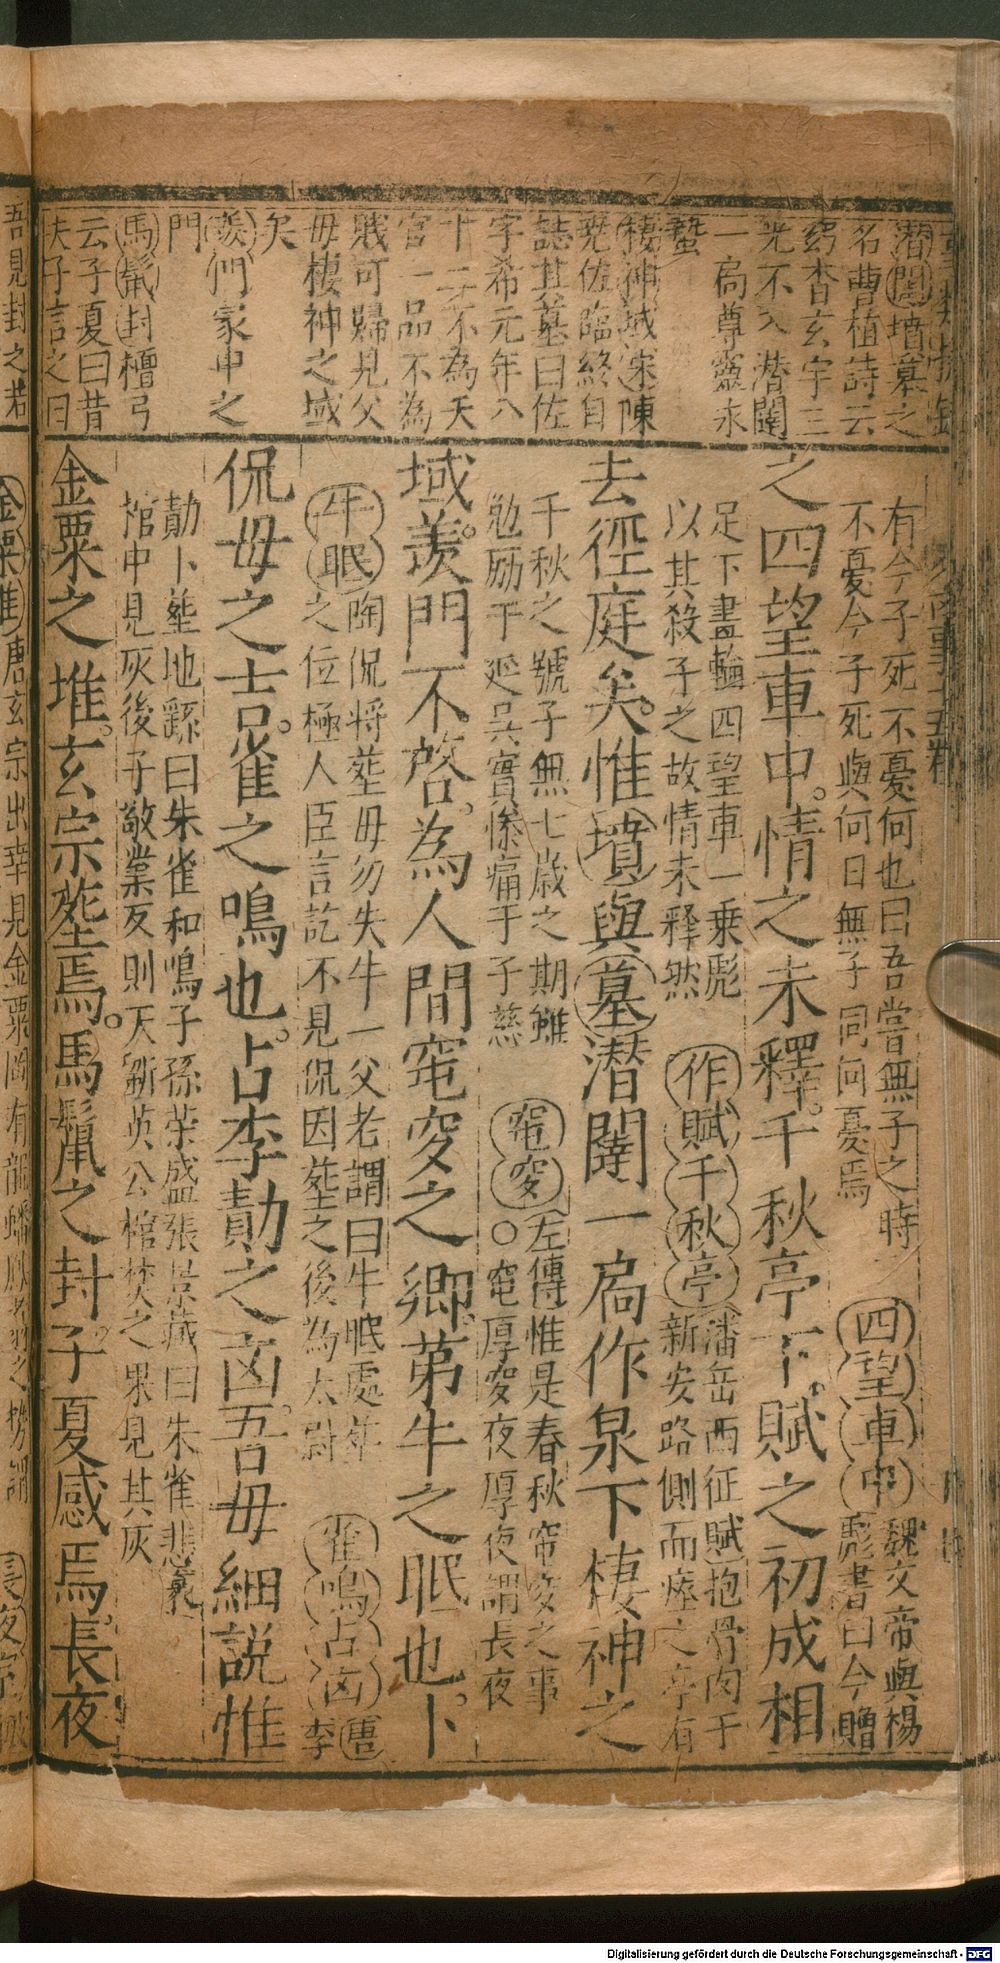 潛闥墳墓之
名曹植詩云
窈杳玄宇三
光不入潛闥
一扃尊靈永
蟄
棲神域宋陳
堯佐臨終自
誌其墓曰佐
字希元年八
十二不為夭
官一品不為
賤可歸見父
毋棲神之域
矣
羨門冢中之
門
馬鬛封檀弓
云子夏曰昔
夫子言之曰
吾見封之若
有今子死不憂何也曰吾嘗無子之時
不憂今子死與何日無子同何憂焉
四望車中魏文帝與楊
彪書曰今贈
之四望車中情之未釋千秋亭下賦之初成相
足下畫輪四望車一乗彪
以其殺子之故情未釋然
作賦千秋亭潘岳西征賦抱骨肉于
新安路側而瘞之亭有
去徑庭矣惟墳與墓潛闥一扃作泉下棲神之
千秋之號子無七歲之期雖
勉勵于延吳實慘痛于子慈
窀穸左傳惟是春秋窀穸之事
○窀厚穸夜厚夜謂長夜
域羨門不啓為人間窀穸之鄉第牛之眠也卜
牛眠陶侃將塟毋勿失牛一父老謂曰牛眠處塟
之位極人臣言訖不見侃因塟之後為太尉
雀鳴占凶唐
李
侃毋之吉雀之鳴也占李勣之凶吾毋細説惟
勣卜塟地繇曰朱雀和鳴子孫荣盛張景藏曰朱雀悲哀
棺中見灰後子敬業反則天斵英公棺焚之果見其灰
金粟之堆玄宗塟焉馬鬛之封子夏感焉長夜
金粟堆唐玄宗出幸見金粟岡有龍蟠鳳翥之勢謂
長夜室
Digitalisierung gefördert durch die Deutsche Forschungsgemeinschaft - DFG